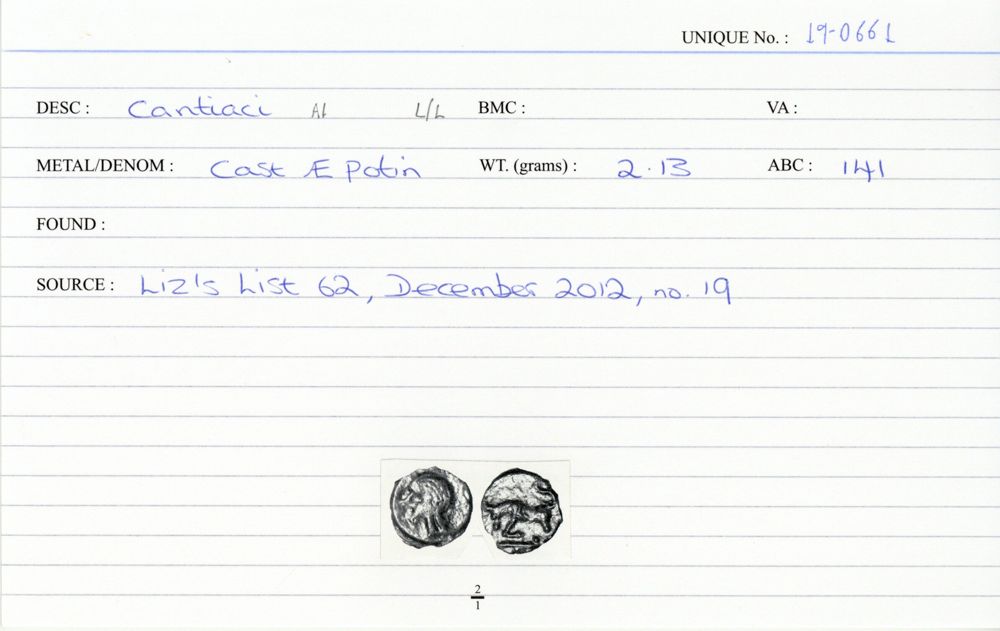 UNIQUE No. : 19-0661
DESC : Cantiaci A1 L/L BMC : VA :
METAL/DENOM : Cast Æ Potin WT. (grams) : 2.13 ABC : 141
FOUND :
SOURCE : Liz's List 62, December 2012, no. 19
2
1